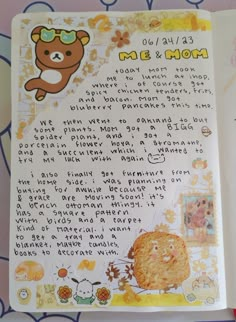 06/24/23
ME & MOM
today mom took
me to lunch at ihop,
where i of course got
spicy chicken tenders, fries
and bacon. Mom got
blueberry pancakes this time.
we then went to oakland to buy
some plants. Mom got a BIGG
spider plant, and i got a
porcelain flower hoya, a stromanth,
and a succulent which i wanted to
try my luck with again
i also finally got furniture from
the home side. i was planning on
buying for awhile because me
& grace are moving soon! it's
a bench ottoman thingy. it
has a square pattern
with birds and a carpet
kind of material. i want
to get a tray and a
blanket, maybe candles,
books to display with.